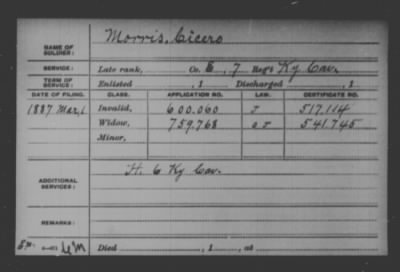 NAME OF SOLDIER: Morris, Cicero
SERVICE: Late rank, Co. E, 7 Reg't Ky Cav.
TERM OF SERVICE: Enlisted , 1 Discharged , 1
DATE OF FILING. CLASS. APPLICATION NO. LAW. CERTIFICATE NO.
1887 Mar, 1 Invalid, 600.060 J 517.114
Widow, 759.768 O J 541.745
Minor,
ADDITIONAL SERVICES: H. 6 Ky Cav.
REMARKS:
Died , 1 , at